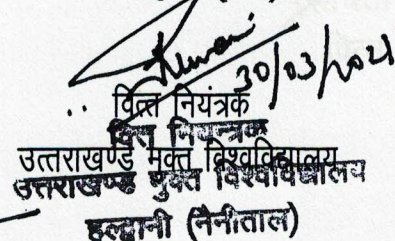 30/03/2021
वित्त नियंत्रक
वित्त नियन्त्रक
उत्तराखण्ड मुक्त विश्वविद्यालय
उत्तराखण्ड मुक्त विश्वविद्यालय
हल्द्वानी (नैनीताल)